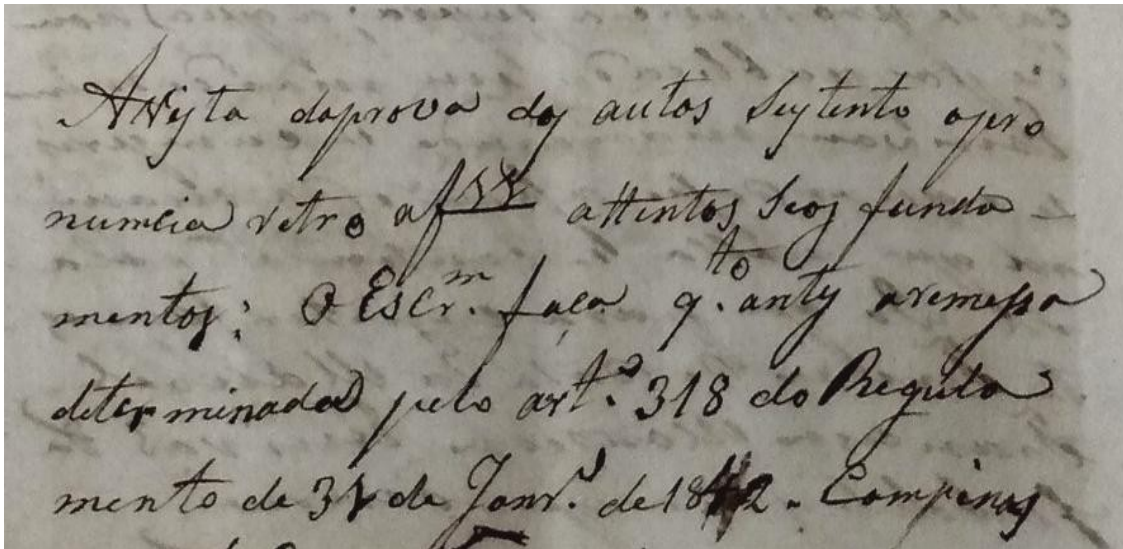 Avista daprova dos autos Sustento apro
nuncia retro af attentos Seos funda
mentos; O Escr.m faça q.to antes aremessa
determinada pelo art.º 318 do Regula
mento de 31 de Janr.º de 1842. Campinas